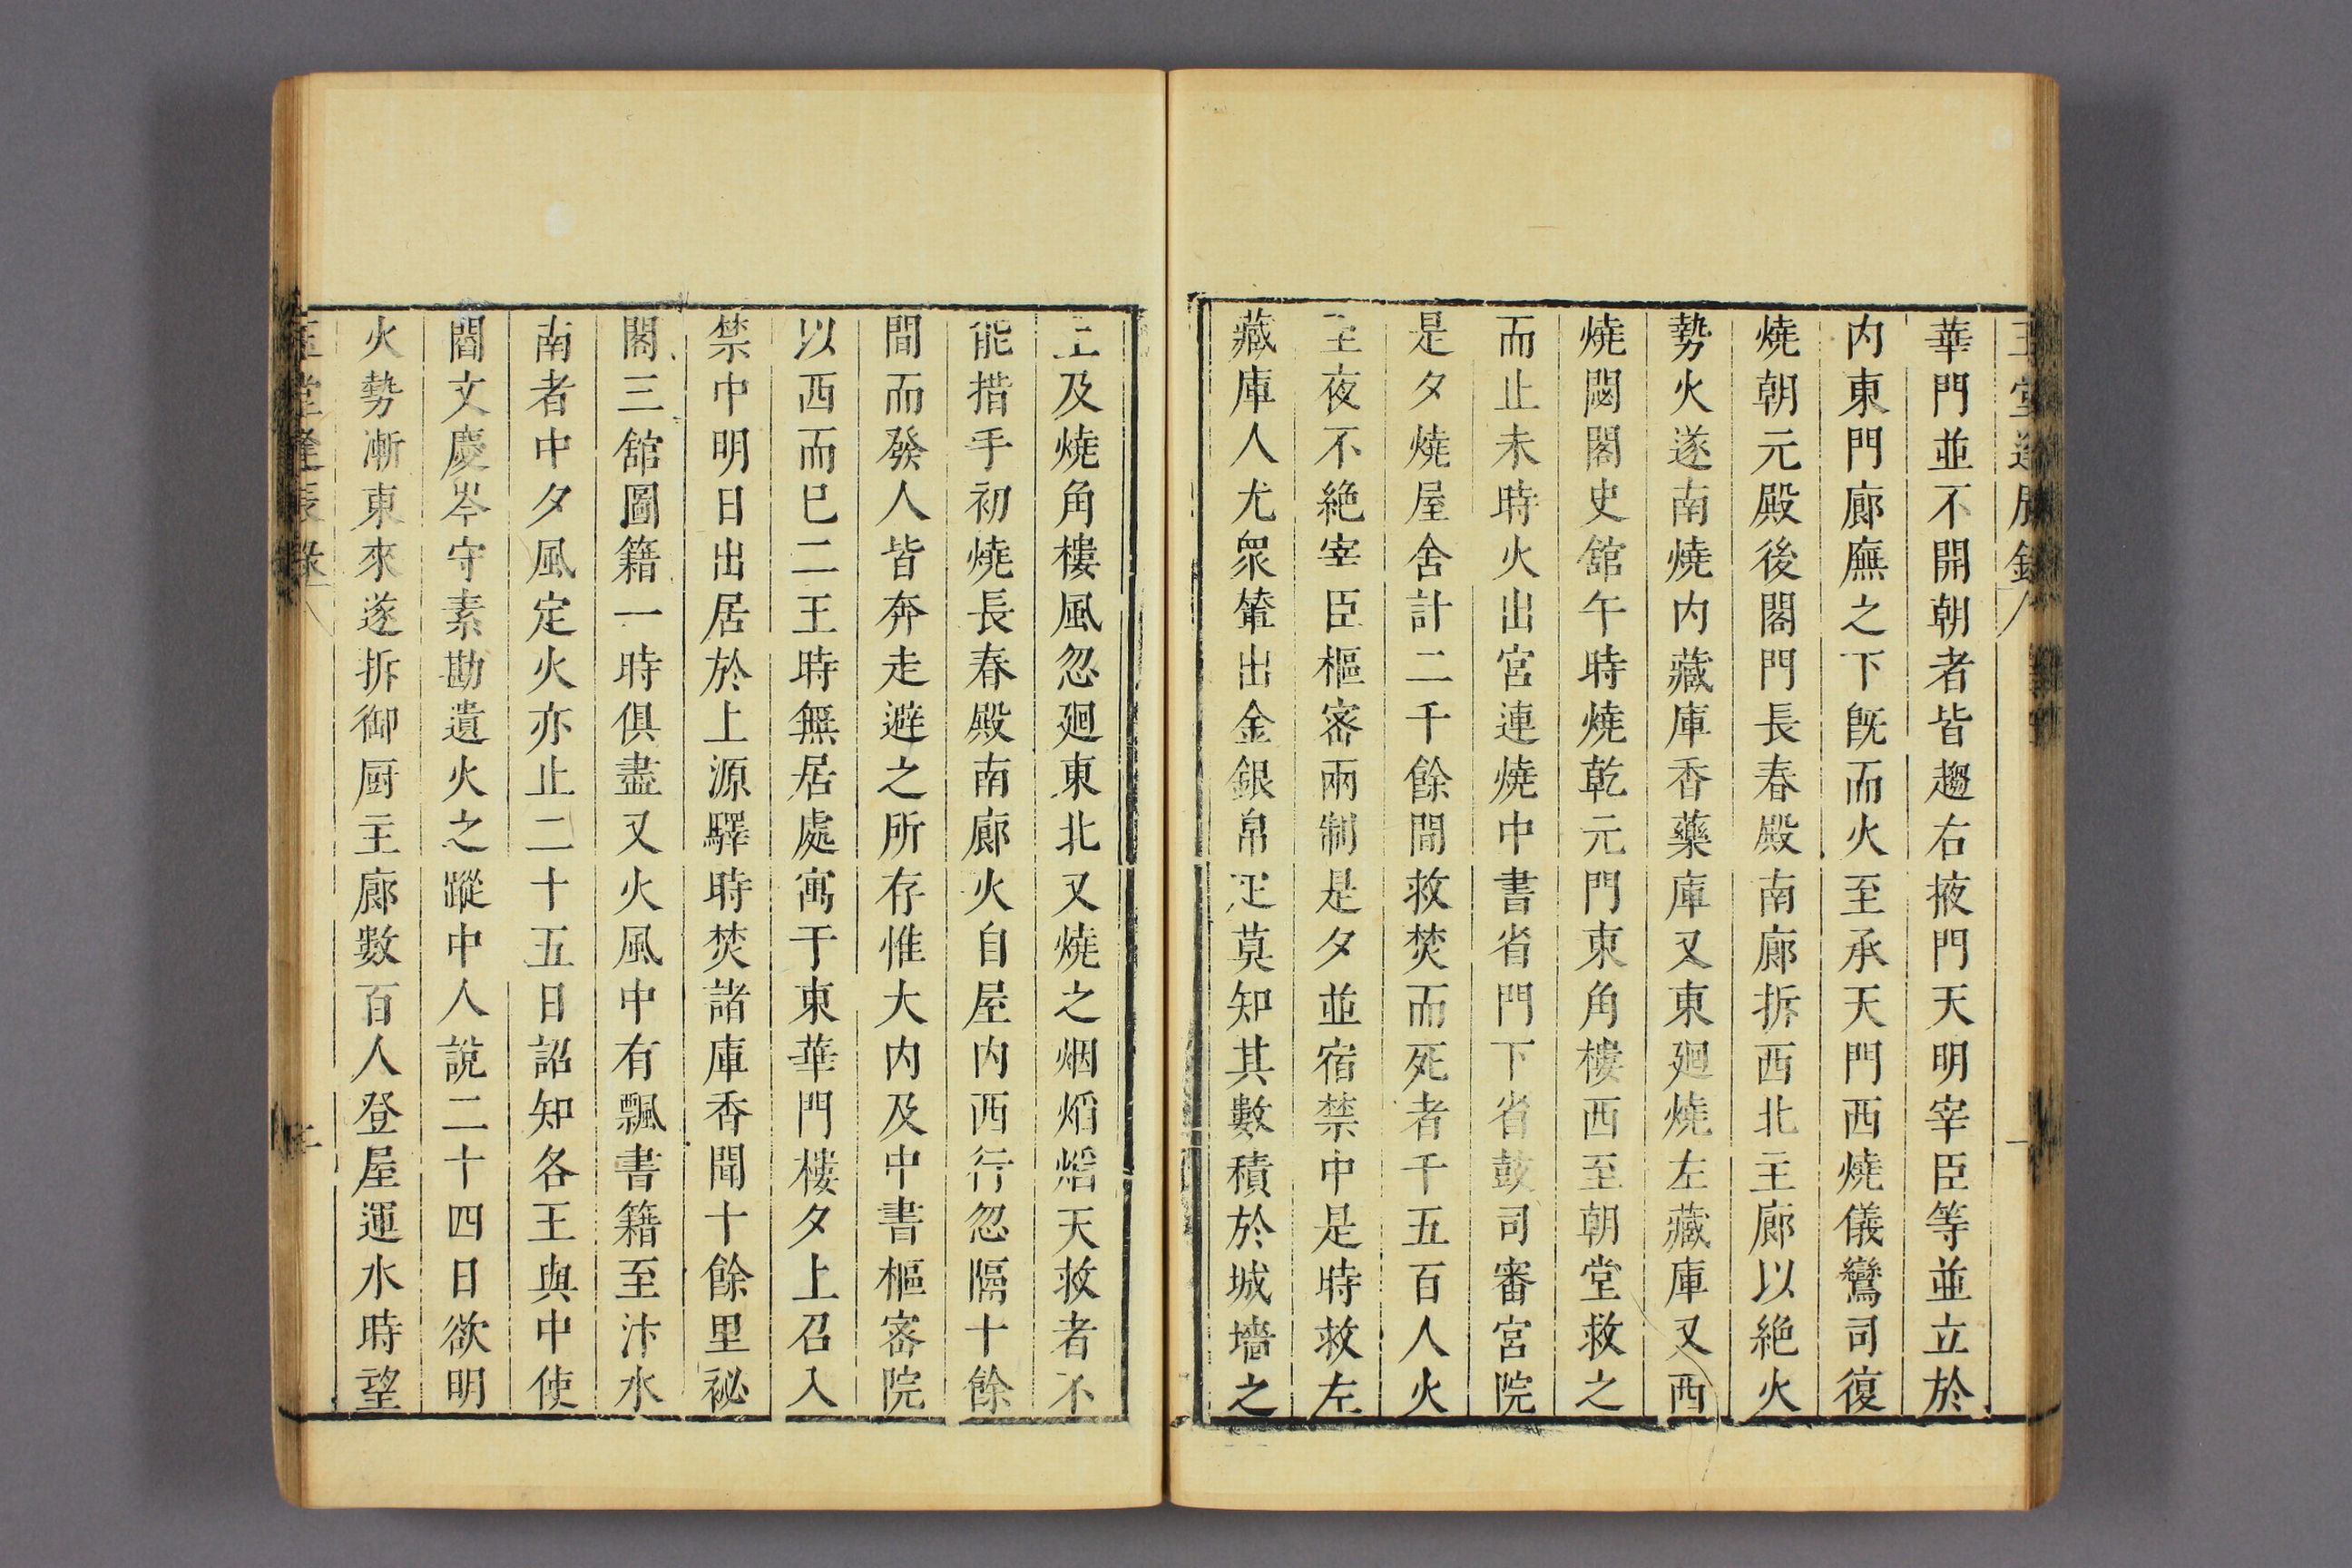 華門並不開朝者皆趨右掖門天明宰臣等並立於
内東門廊廡之下既而火至承天門西燒儀鸞司復
燒朝元殿後閣門長春殿南廊拆西北主廊以絶火
勢火遂南燒内藏庫香藥庫又東廻燒左藏庫又西
燒閟閣史舘午時燒乾元門東角樓西至朝堂救之
而止未時火出宮連燒中書省門下省鼓司審官院
是夕燒屋舍計二千餘間救焚而死者千五百人火
至夜不絶宰臣樞宻兩制是夕並宿禁中是時救左
藏庫人尤衆輦出金銀帛疋莫知其數積於城墻之
上及燒角樓風忽廻東北又燒之烟焰熖天救者不
能措手初燒長春殿南廊火自屋内西行忽隔十餘
間而發人皆奔走避之所存惟大内及中書樞宻院
以西而已二王時無居處寓于東華門樓夕上召入
禁中明日出居於上源驛時焚諸庫香聞十餘里祕
閣三舘圖籍一時俱盡又火風中有飄書籍至汴水
南者中夕風定火亦止二十五日詔知各王與中使
閻文慶岑守素勘遺火之蹤中人說二十四日欲明
火勢漸東來遂拆御厨主廊數百人登屋運水時望